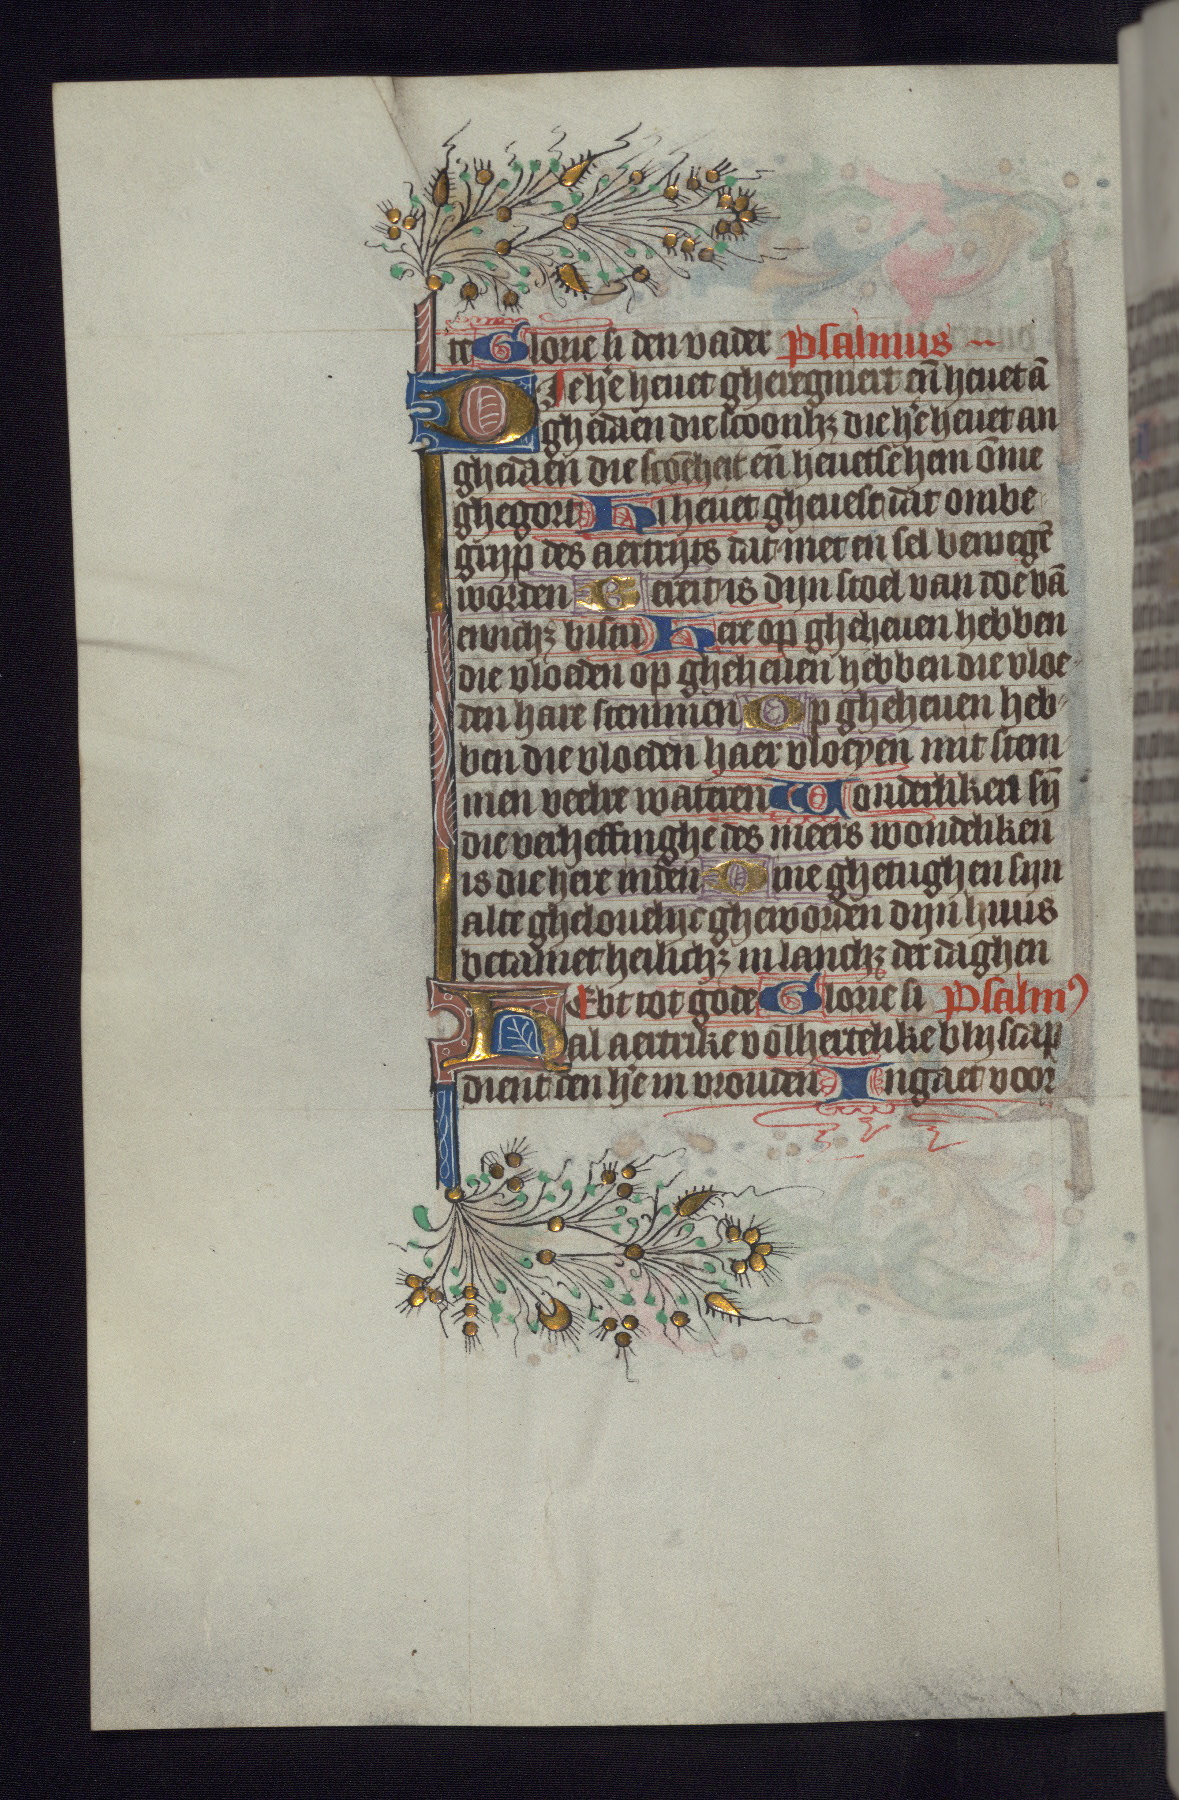 te Glorie si den vader Psalmus
DIe hr̄e heuet gheregniert en̄ heuet ā
ghedaen die scoonhꝫ die hr̄e heuet an
ghedaen die scoēheit en̄ heuetsē hem ōme
ghegort Hi heuet gheuest dat ombe
grijp des aertrijts dat niet en sel beweget̄
worden Bereit is dijn stoel van doe vā
ewichꝫ bistu Here op gheheuen hebben
die vloeden op gheheuen hebben die vloe
den hare stemmen Op gheheuen heb-
ben die vloeden haer vloeyen mit stem
men veelre wateren Wonderliken sȳ
die verheffinghe des meers wonderliken
is die here inden Dine ghetughen sijn
alte ghelouelijc gheworden dijn huus
betamet heilichꝫ in lancꝫ der daghen
HEbt tot gode Glorie si Psalmꝰ
al aertrike volhertelike blyscap
dient den hr̄e in vrouden Ingaet voor